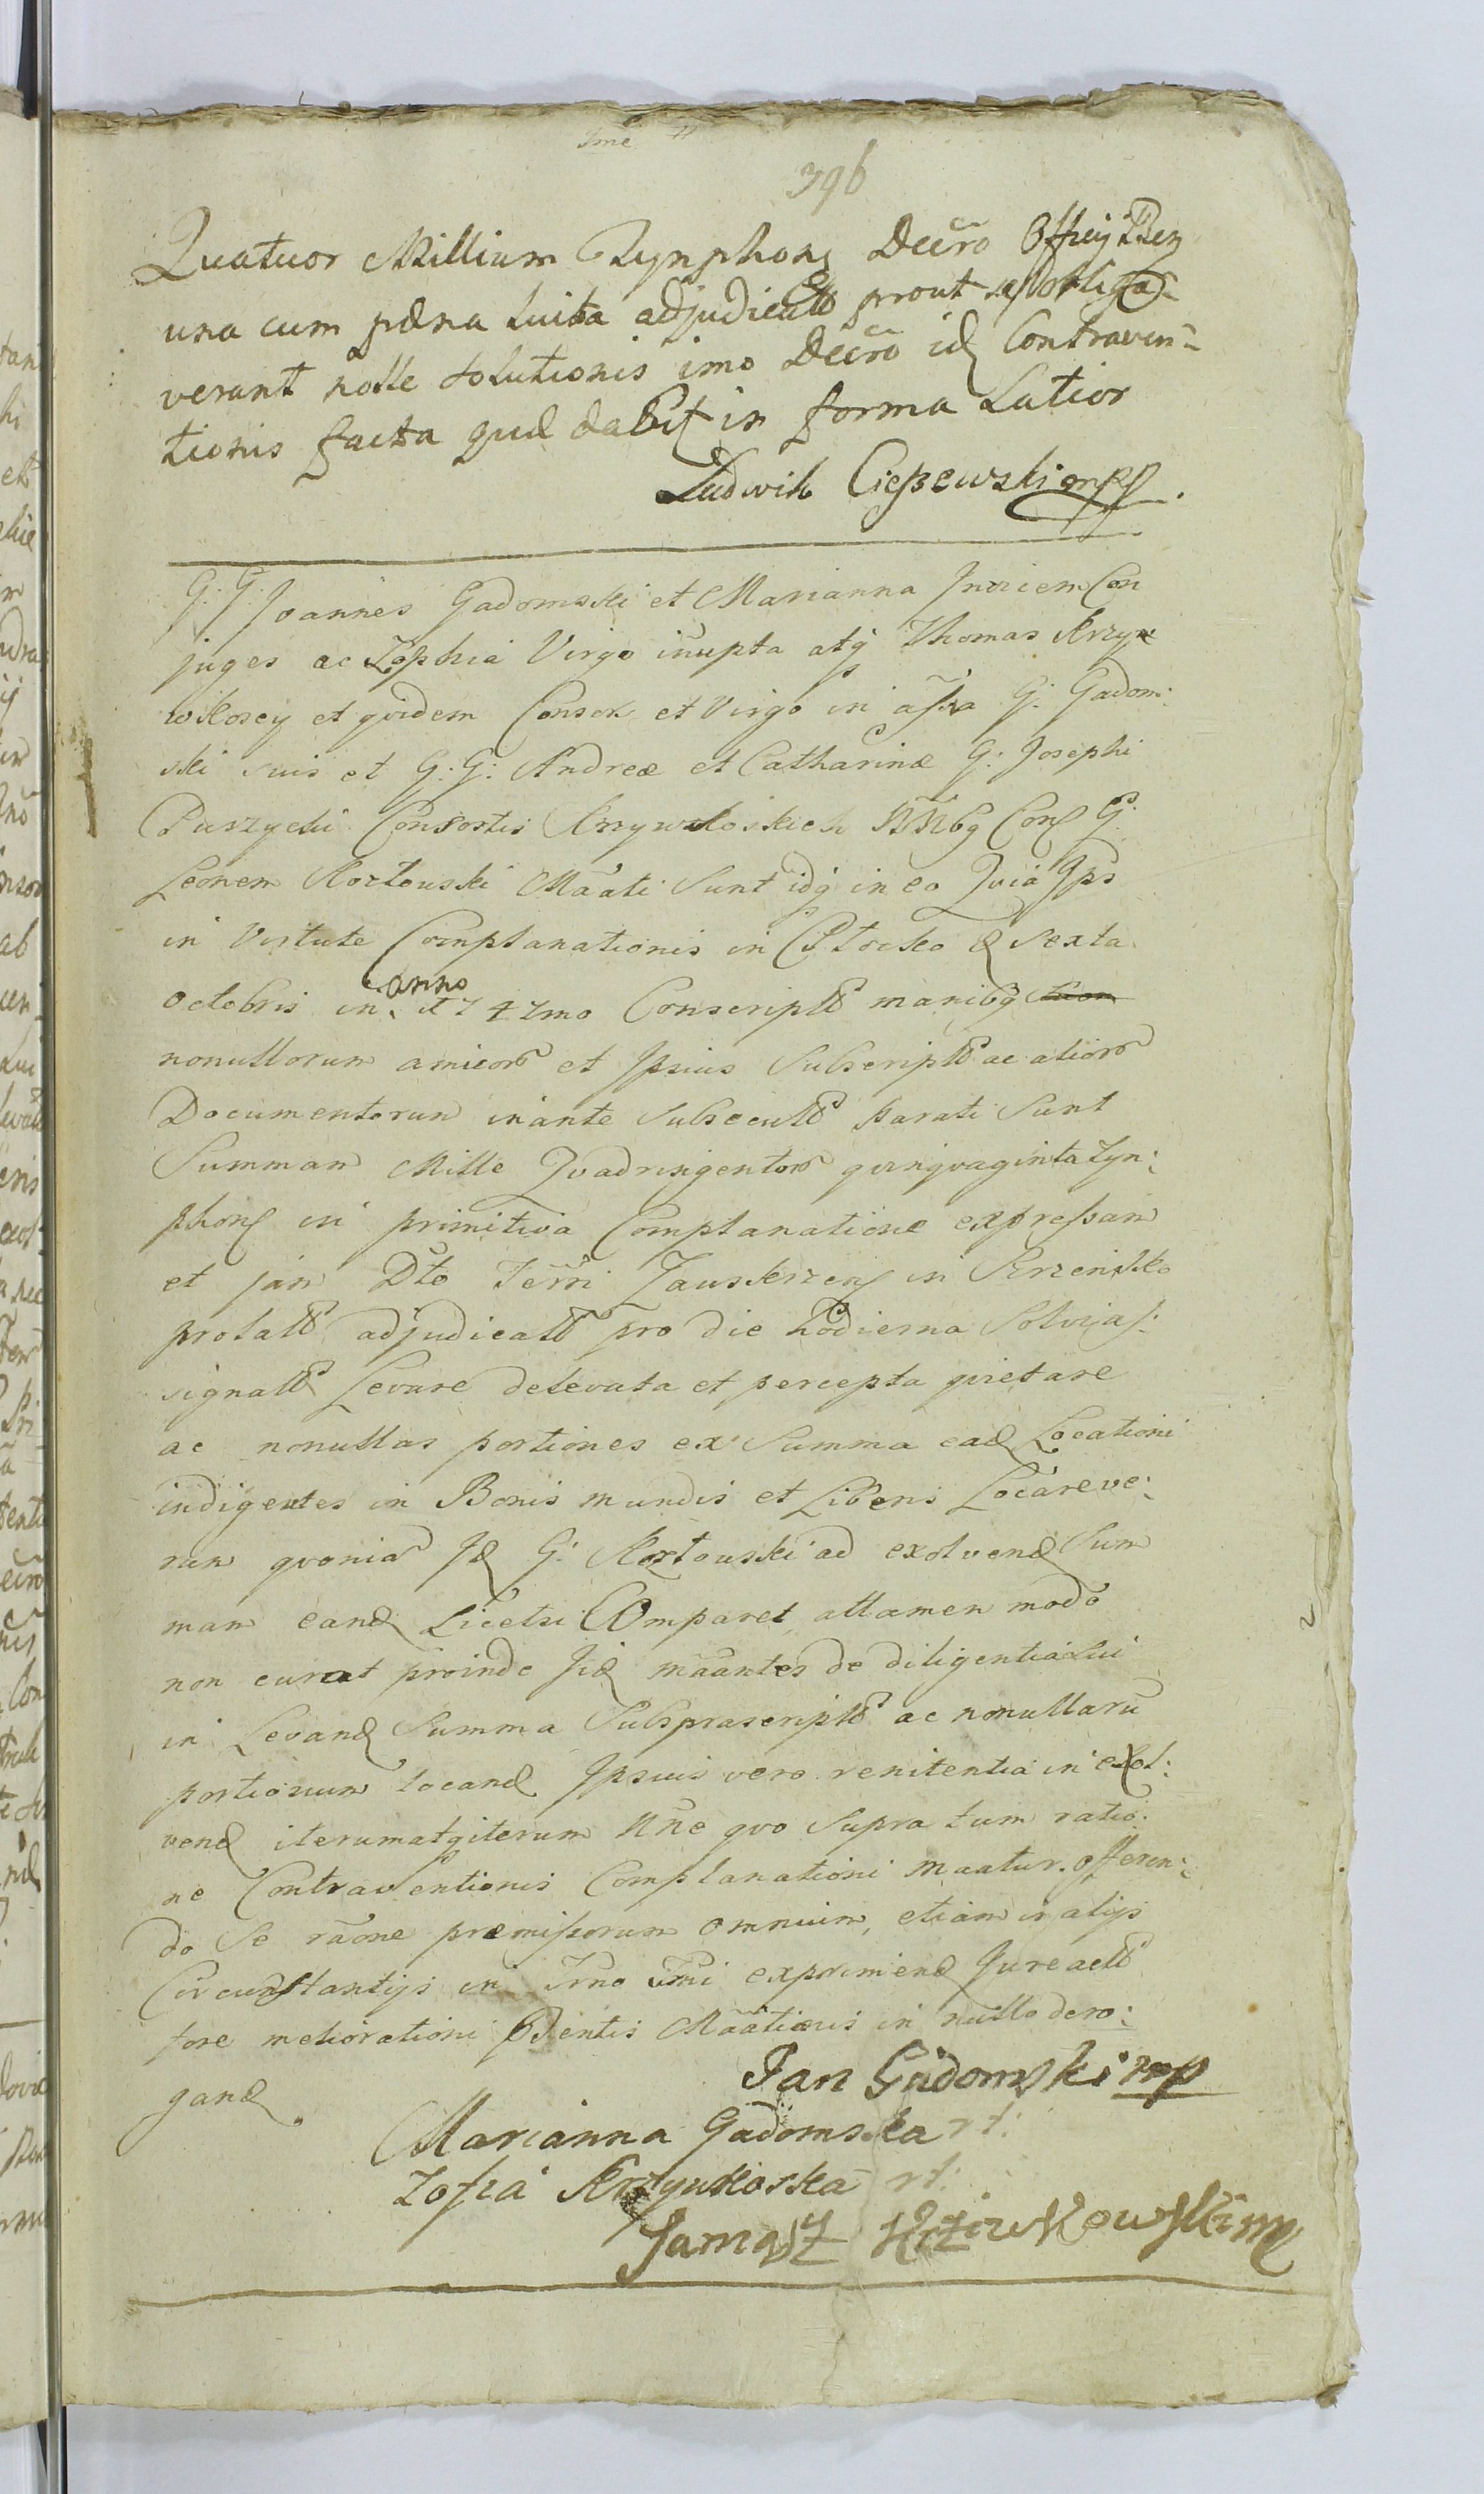 396
Quatuor Millium Tynphonς Decro Officij
una cum pæna luita adjudicatt prout se obliga=
verant nolle Solutionis imo Decro id Contraven=
tionis facta quæ dabit in forma Latior
Ludwik Cieszewski mpp.
G: G: Joannes Gadomski et Marianna Invicem Con
juges ac Zophia Virgo inupta atq Thomas Krzyw
wkoscy et qvidem Consor et Virgo in assa G: Gadom:
ski suis et G: G: Andreæ et Catharinæ G: Josephi
Purzycki Consortis Krzywkoskich Cons G:
Leonem Koztouski Maati Sunt idq in eo Qvia Ips
in Virtute Complanationis in Plocko d Sexta
Octobris in anno 1747mo Conscript manibq
nonullorum amicor et Ipsius Subscript ac alior
Documentorum inante Subsecutt parati Sunt
Summam Mille Qvadringentor qvinqvaginta Tyn:
phonς in primitiva Complanatione expressam
et jam Dto Terri Zauskrzenς in Krzensko
prolatt adjudicatt pro die hodierna Solvi as:
signatt Levare delevata et percepta qvietare
ac nonullas portiones ex Summa ead Locationi
indigentes in Bonis mundis et Liberis Locare ve:
rum qvoniam Id G: Koztouski ad exolvend Sum
mam eand Licetsi Comparet attamen modo
non curat proinde Iid maantes de diligentia Sui
in Levand Summa Subspraescript ac nonullaru
portionum locand Ipsius vero renitentia in exol:
vend iterum atq iterum Nne qvo Supra tum ratio:
ne Contraventionis Complanationi maatur. Offeren:
do Se raone præmissorum omnium, etiam in alijs
Circunstantijs in Trno exprimend Jure actt
fore meliorationi Pdentis Maationis in nullo dero:
gand.
Jan Gadomski mp
Marianna Gadomska rt:
Zofia Krzywkoska rt:
Tamasz Krziwkowski mp